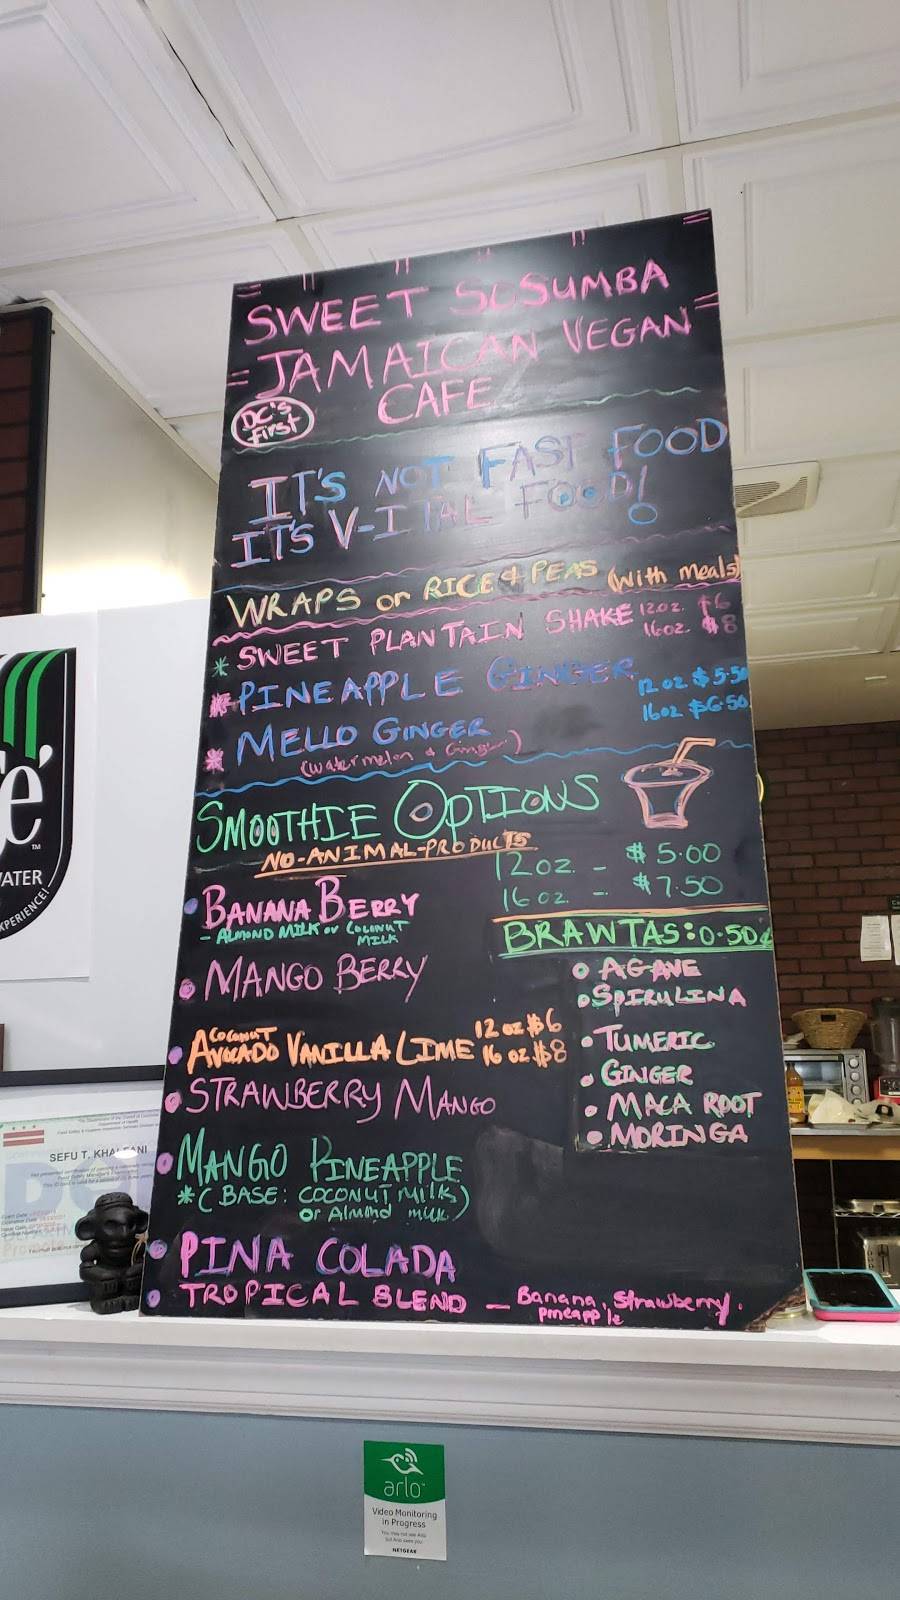 SWEET SOSUMBA
JAMAICAN VEGAN
CAFE
DC's
First
IT'S NOT FAST FOOD
IT'S V-ITAL FOOD!
WRAPS or RICE & PEAS (with meals)
* SWEET PLANTAIN SHAKE 12oz. $6
16oz $8
* PINEAPPLE GINGER 12 oz $5.50
16oz $6.50
* MELLO GINGER
(watermelon & Ginger)
SMOOTHIE OPTIONS
NO-ANIMAL-PRODUCTS
12oz - $5.00
16oz - $7.50
BANANA BERRY
- ALMOND MILK or COCONUT
MILK
MANGO BERRY
COCONUT
AVOCADO VANILLA LIME 12 oz $6
16 oz $8
STRAWBERRY MANGO
MANGO PINEAPPLE
*(BASE: COCONUT MILK)
or Almond milk)
PINA COLADA
TROPICAL BLEND - Banana, Strawberry.
pineapple
BRAWTAS: 0.50¢
AGANE
SPIRULINA
TUMERIC
GINGER
MACA ROOT
MORINGA
é
TM
ATER
XPERIENCE!
SEFU T. KHALFANI
arlo
Video Monitoring
in Progress
You may not see Arlo
but Arlo sees you
NETGEAR